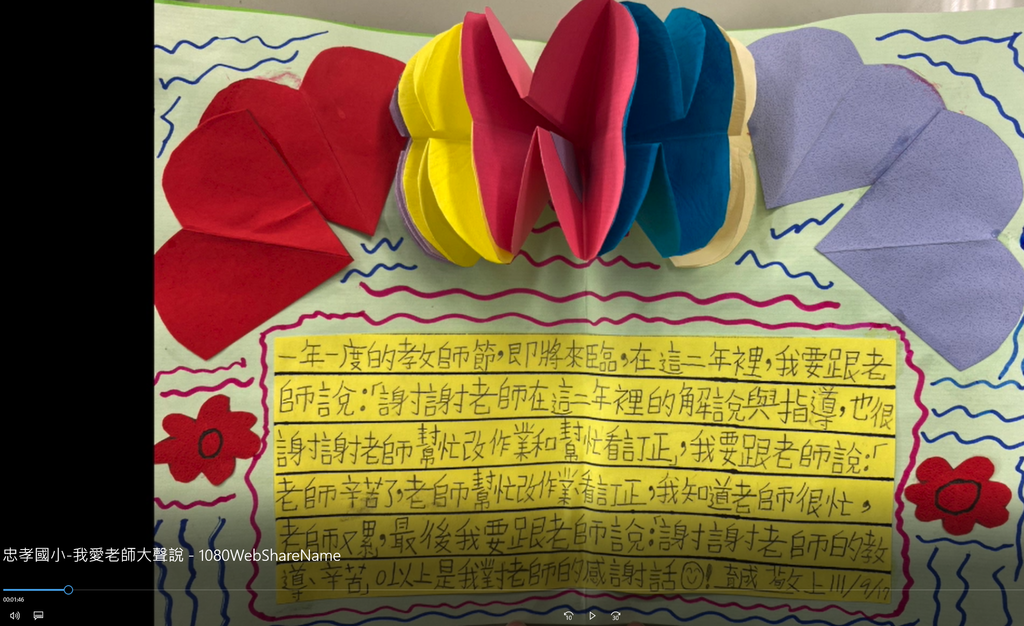 一年一度的教師節，即將來臨，在這二年裡，我要跟老
師說：「謝謝老師在這二年裡的解說與指導，也很
謝謝老師幫忙改作業和幫忙看訂正」，我要跟老師說：「
老師辛苦了，老師幫忙改作業看訂正，我知道老師很忙，
老師又累，最後我要跟老師說：「謝謝老師的教
導、辛苦」。以上是我對老師的感謝話☺！ 敬上 111/9/17
忠孝國小-我愛老師大聲說 - 1080WebShareName
00:01:46
10 30